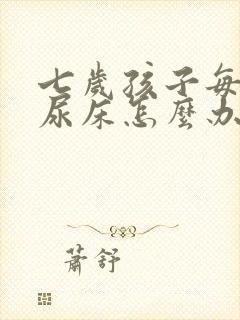 七歲孩子每
尿床怎麼办
蕭舒